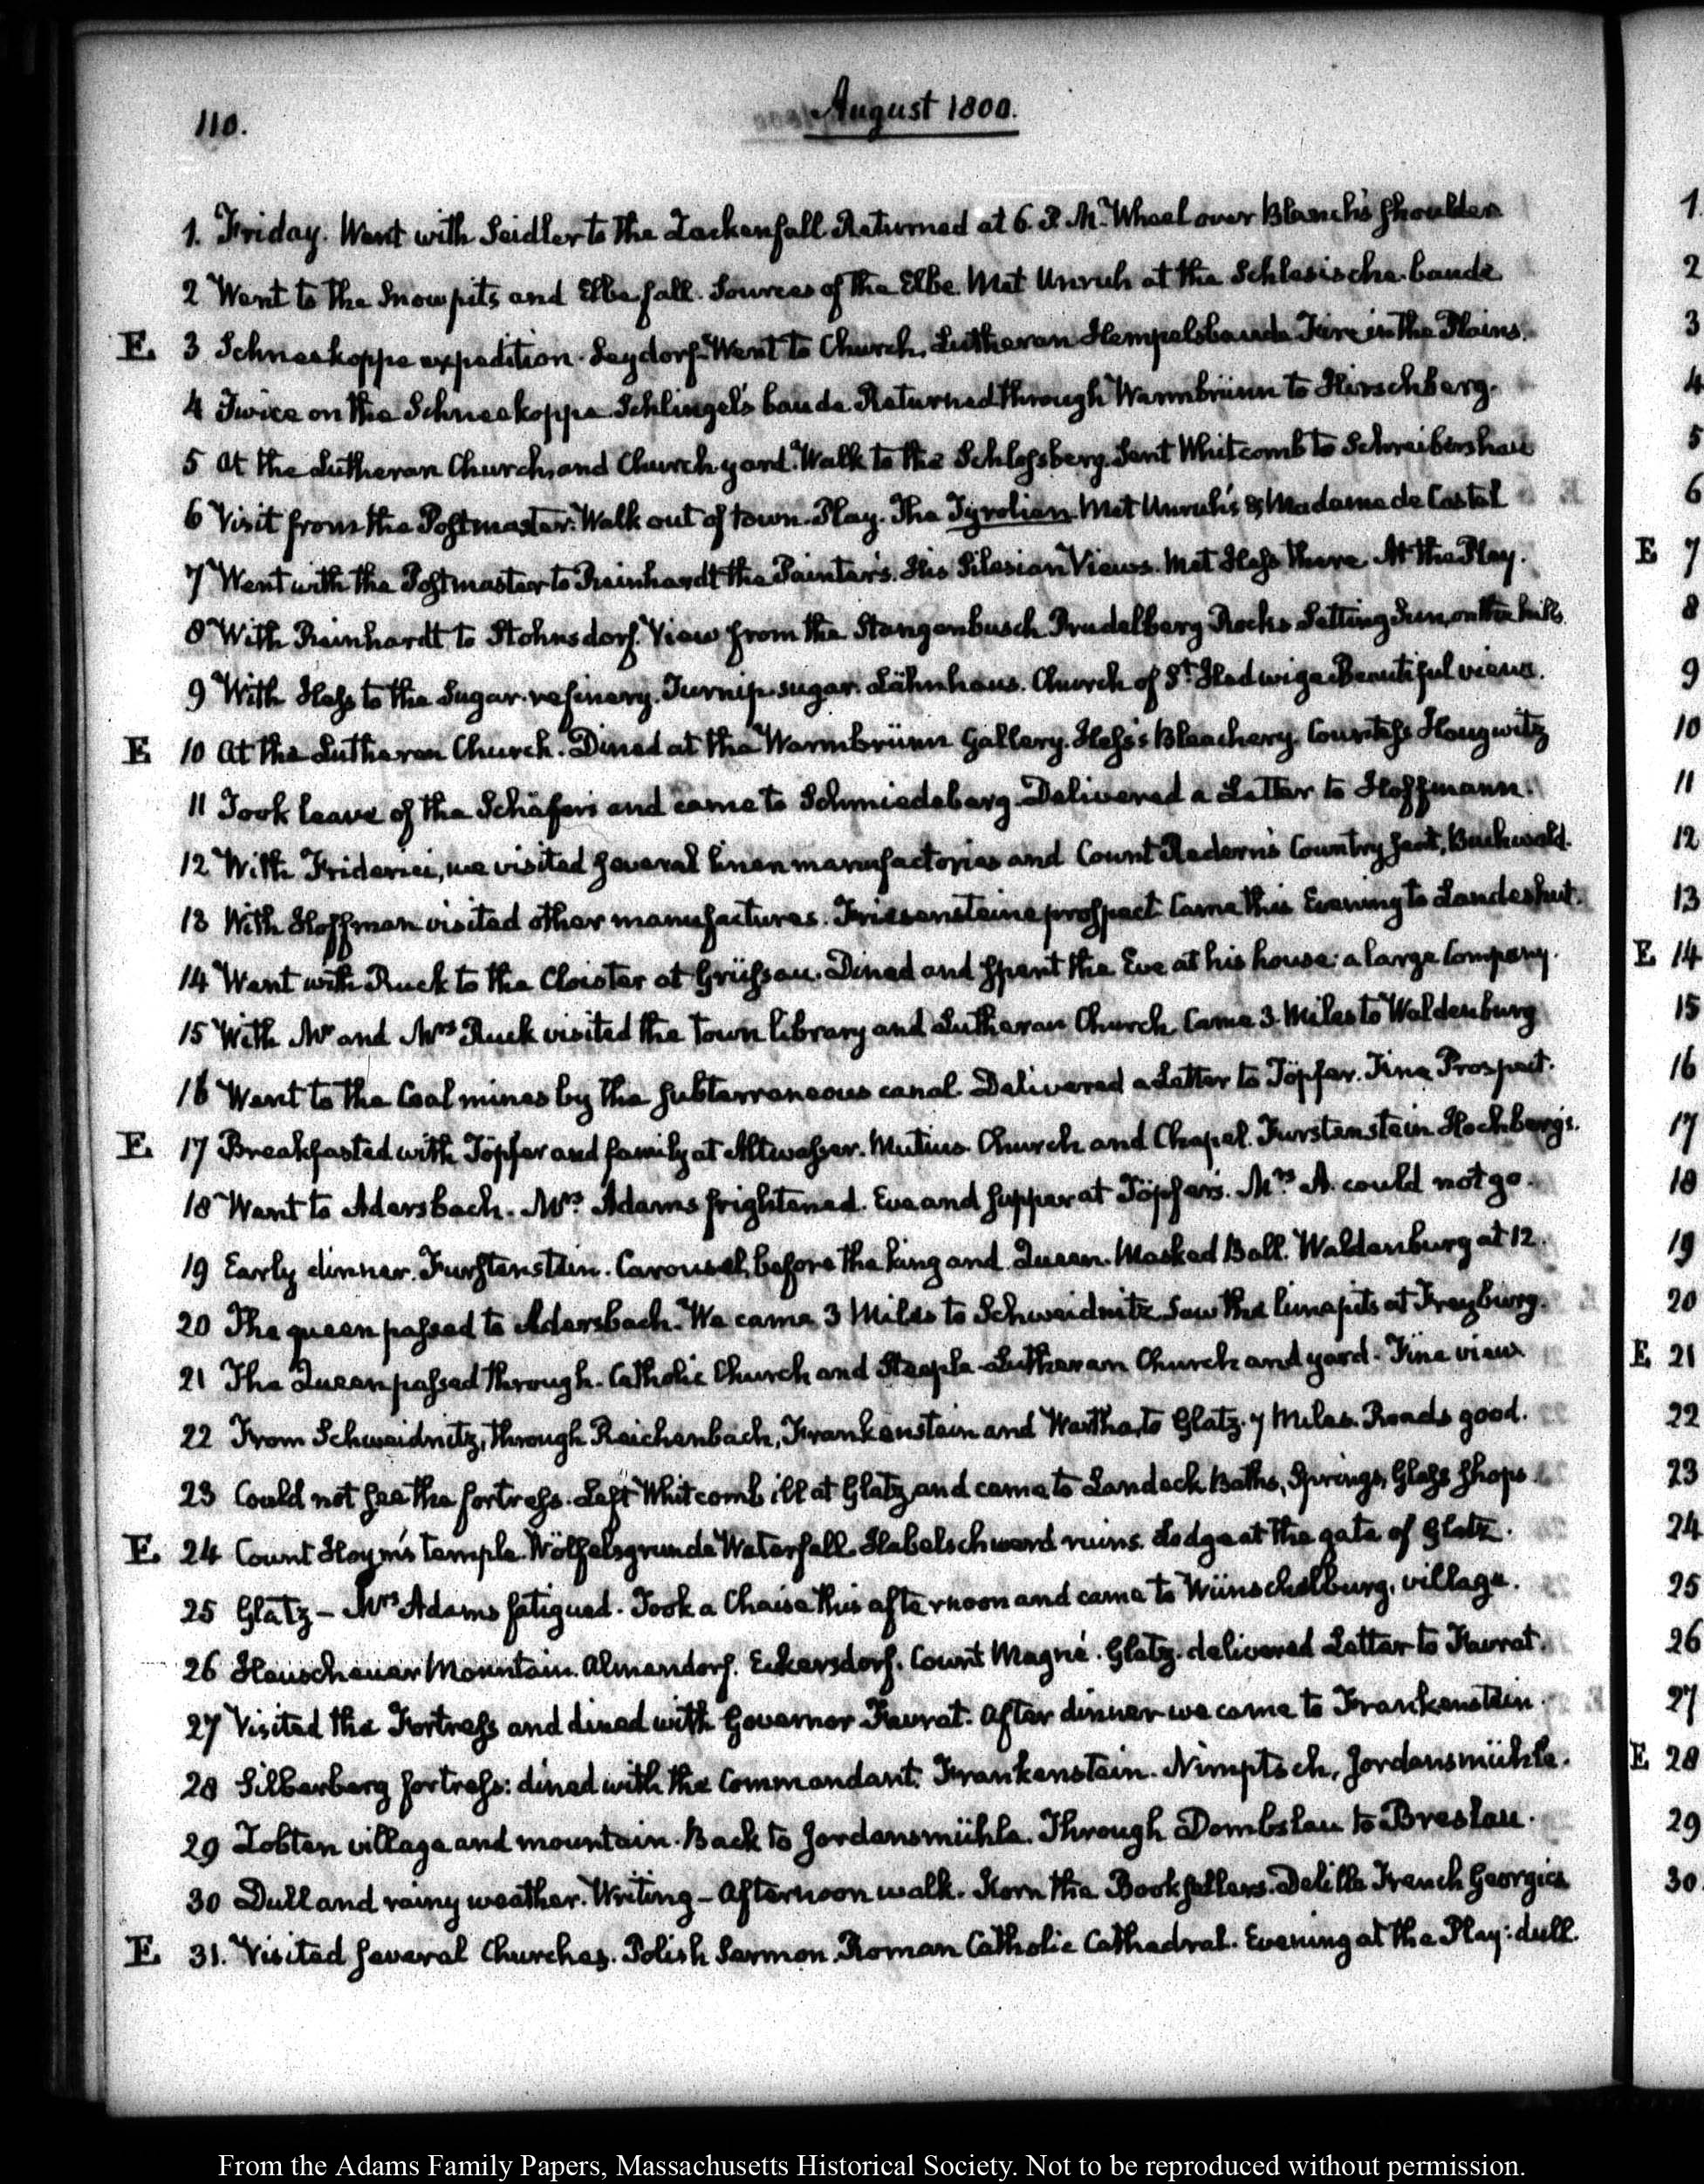 110.
August 1800.
1. Friday. Went with Seidler to the Zackenfall. Returned at 6. P. M. Wheel over Blanch's shoulder
2 Went to the Snowpits and Elbe fall. Sources of the Elbe. Met Unruh at the Schlesische-baude
E. 3 Schneekoppe expedition. Seydorf. Went to Church, Lutheran Hempelsbaude Fire in the Plains.
4 Twice on the Schneekoppe Schlingel's baude. Returned through Warmbrünn to Hirschberg.
5 At the Lutheran Church, and Church yard. Walk to the Schlossberg. Sent Whitcomb to Schreibershau
6 Visit from the Postmaster. Walk out of town. Play. The Tyrolian. Met Unruh's & Madame de Castel
7 Went with the Postmaster to Reinhardt the Painter's. His Silesian Views. Met Hess there. At the Play.
8 With Reinhardt to Stohnsdorf. View from the Stangenbusch. Prudelberg Rocks Setting Sun, on the hills
9 With Hess to the Sugar-refinery. Turnip sugar. Lähnhaus. Church of St. Hedwige Beautiful views.
E 10 At the Lutheran Church. Dined at the Warmbrünn Gallery. Hess's Bleachery. Countess Haugwitz
11 Took leave of the Schäfers and came to Schmiedeberg. Delivered a Letter to Hoffmann.
12 With Friderici, we visited several linen manufactories and Count Redern's Country seat, Buchwald.
13 With Hoffman visited other manufactures. Friesensteine prospect. Came this Evening to Landeshut.
14 Went with Ruck to the Cloister at Grüssau. Dined and spent the Eve at his house: a large Company.
15 With Mr and Mrs Ruck visited the Town library and Lutheran Church. Came 3 Miles to Waldenburg
16 Went to the Coal mines by the subterraneous canal. Delivered a Letter to Töpfer. Fine Prospect.
E. 17 Breakfasted with Töpfer and family at Altwasser. Mutius. Church and Chapel. Furstenstein Hochbergs.
18 Went to Adersbach. Mrs. Adams frightened. Eve and supper at Töpfer's. Mrs. A. could not go.
19 Early dinner. Furstenstein. Carousel, before the king and Queen. Masked Ball. Waldenburg at 12.
20 The queen passed to Adersbach. We came 3 Miles to Schweidnitz. Saw the limepits at Freyburg.
21 The Queen passed through. Catholic Church and Steeple. Lutheran Church and yard. Fine view.
22 From Schweidnitz, through Reichenbach, Frankenstein and Wartha, to Glatz. 7 Miles. Roads good.
23 Could not see the fortress. Left Whitcomb ill at Glatz, and came to Landeck Baths, Springs, Glass shops.
E. 24 Count Hoym's temple. Wölfelsgrunde Waterfall. Habelschwerd ruins. Lodge at the gate of Glatz.
25 Glatz – Mrs Adams fatigued. Took a Chaise this afternoon and came to Wünschelburg, village.
26 Heuscheuer Mountain. Almendorf. Eckersdorf. Count Magné. Glatz. delivered Letter to Favrat.
27 Visited the Fortress and dined with Governor Favrat. After dinner we came to Frankenstein.
28 Silberberg fortress: dined with the Commandant. Frankenstein. Nimptsch, Jordansmühle.
29 Zobten village and mountain. Back to Jordansmühle. Through Dombslau to Breslau.
30 Dull and rainy weather. Writing – Afternoon walk. Korn the Booksellers. Delille French Georgics
E. 31. Visited several Churches. Polish Sermon. Roman Catholic Cathedral. Evening at the Play: dull.
1
2
3
4
5
6
E 7
8
9
10
11
12
13
E 14
15
16
17
18
19
20
E 21
22
23
24
25
26
27
E 28
29
30
From the Adams Family Papers, Massachusetts Historical Society. Not to be reproduced without permission.